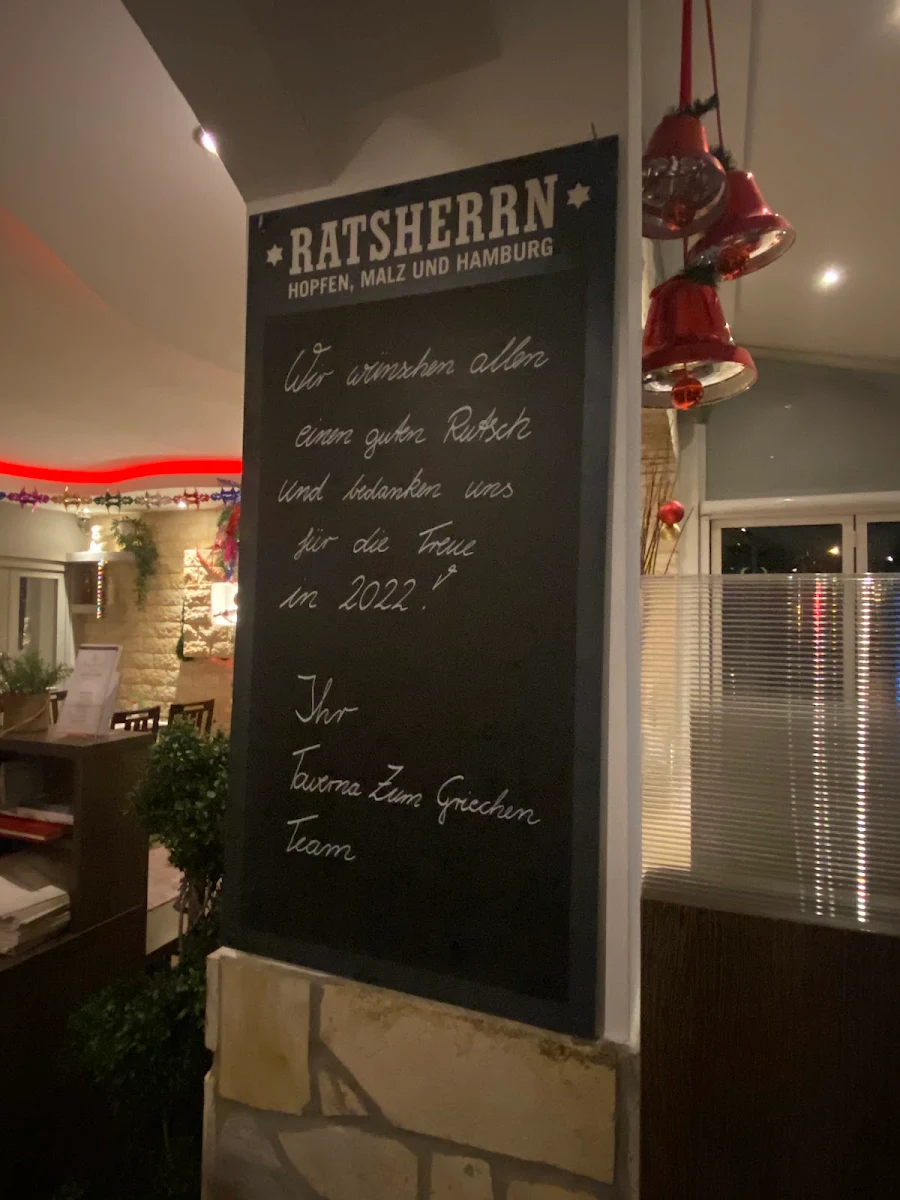 RATSHERRN
HOPFEN, MALZ UND HAMBURG
Wir wünschen allen
einen guten Rutsch
und bedanken uns
für die Treue
in 2022!
Ihr
Taverna Zum Griechen
Team